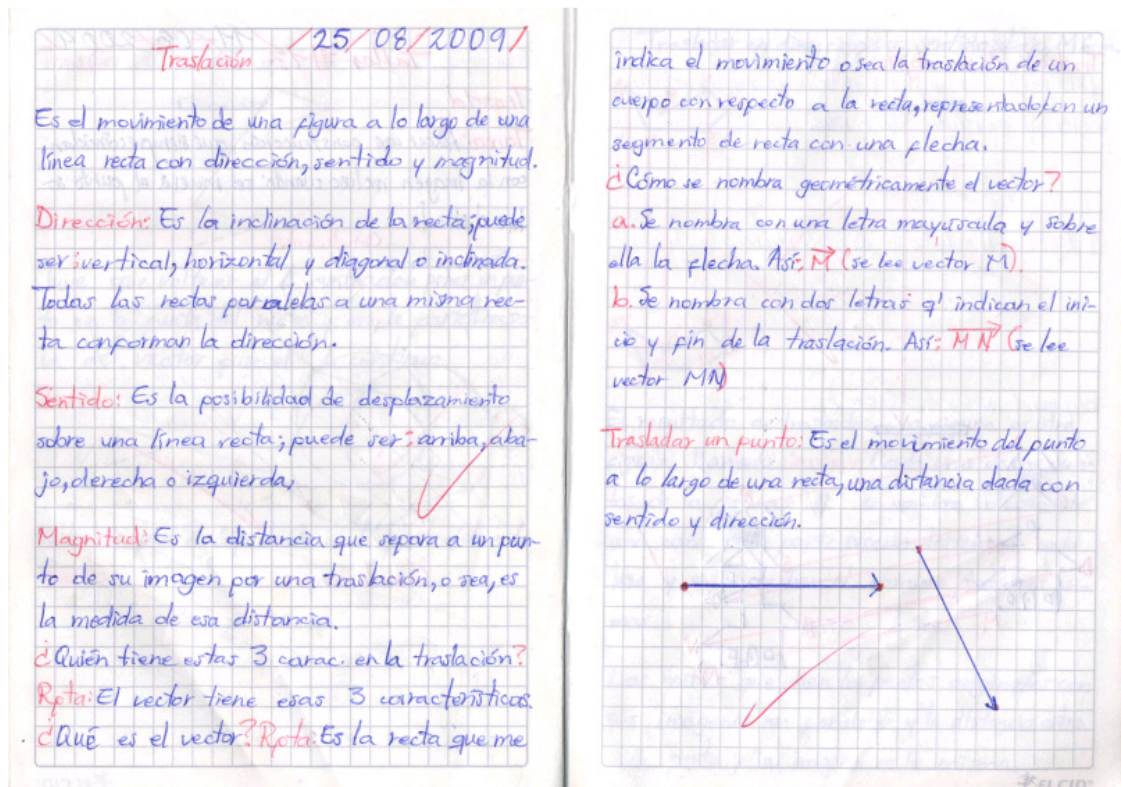 /25/08/2009/
Traslación
Es el movimiento de una figura a lo largo de una
línea recta con dirección, sentido y magnitud.
Dirección: Es la inclinación de la recta; puede
ser: vertical, horizontal y diagonal o inclinada.
Todas las rectas paralelas a una misma rec-
ta conforman la dirección.
Sentido: Es la posibilidad de desplazamiento
sobre una línea recta; puede ser: arriba, aba-
jo, derecha o izquierda,
Magnitud: Es la distancia que separa a un pun-
to de su imagen por una traslación, o sea, es
la medida de esa distancia.
¿Quién tiene estas 3 carac. en la traslación?
Rpta: El vector tiene esas 3 características.
¿Qué es el vector? Rpta: Es la recta que me
indica el movimiento o sea la traslación de un
cuerpo con respecto a la recta, representado con un
segmento de recta con una flecha.
¿Cómo se nombra geométricamente el vector?
a. Se nombra con una letra mayúscula y sobre
ella la flecha. Así: M⃗ (se lee vector M⃗).
b. Se nombra con dos letras q' indican el ini-
cio y fin de la traslación. Así: MN⃗ (se lee
vector MN)
Trasladar un punto: Es el movimiento del punto
a lo largo de una recta, una distancia dada con
sentido y dirección.
EL CID